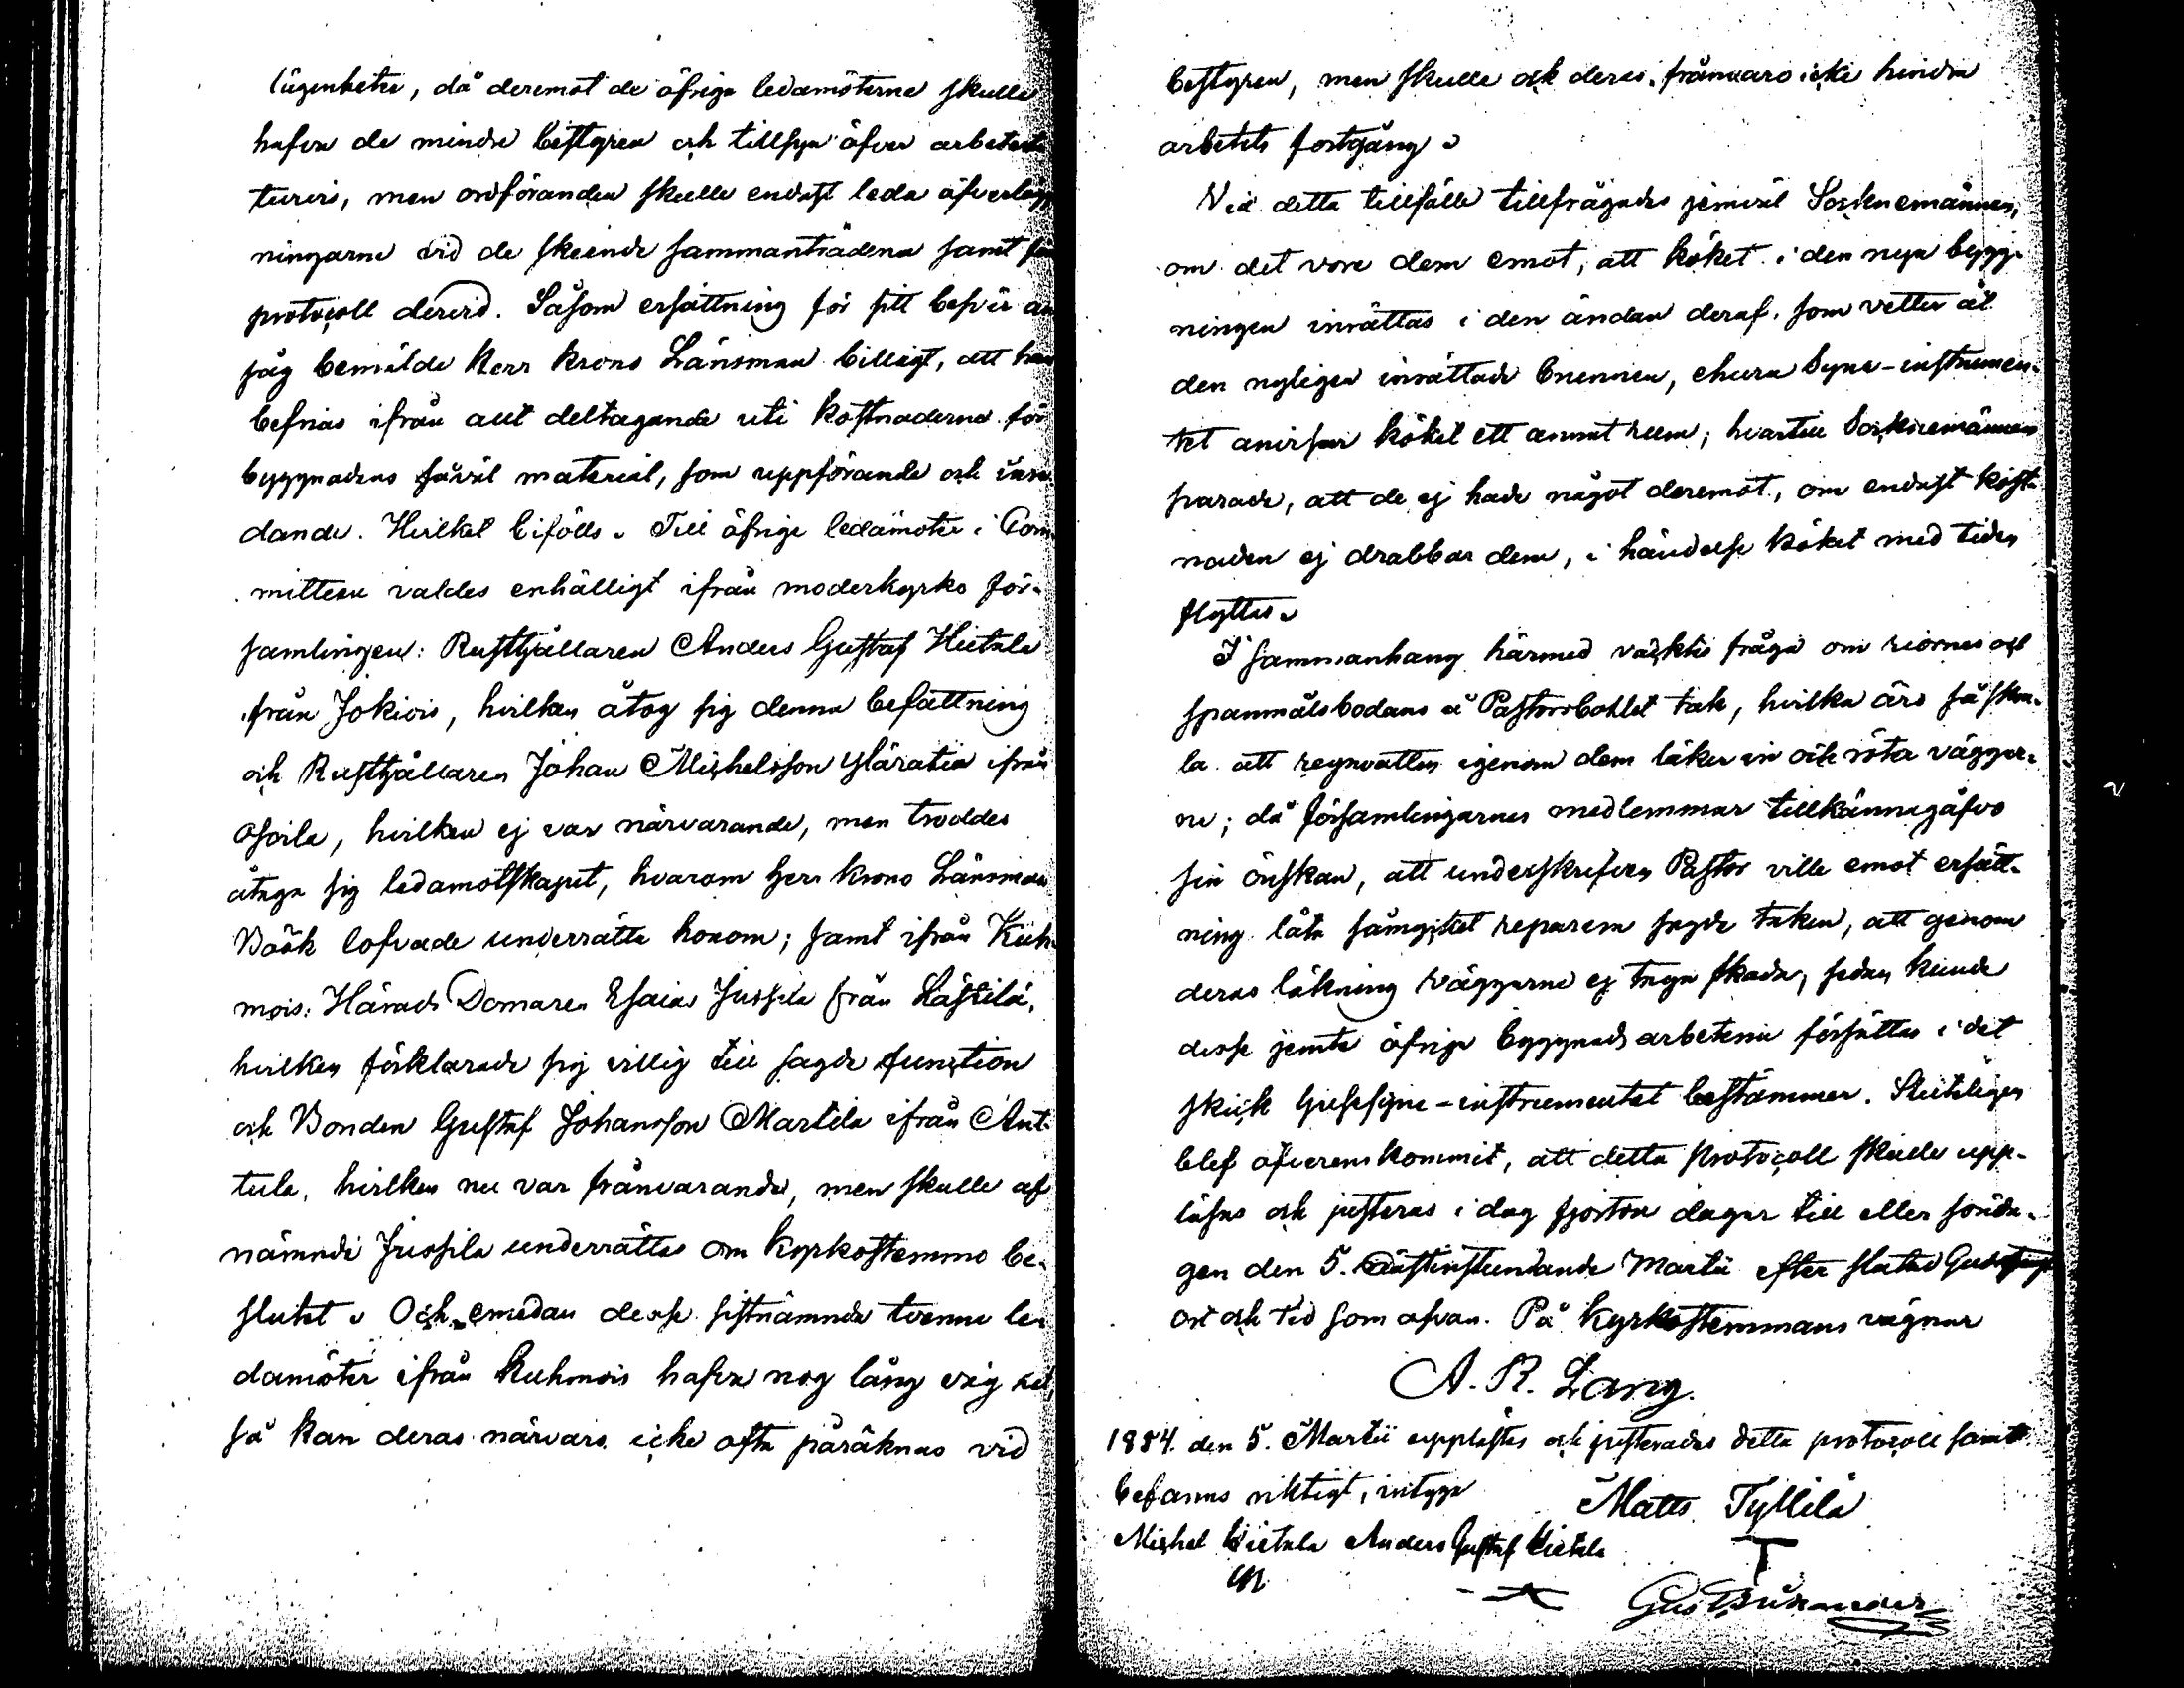 lägenheter, då deremot de öfriga ledamöterne skulle
hafva de mindre bestyren och tillsyn öfver arbetet
turvis, men ordföranden skulle endast leda öfverlägg
ningarne vid de skeende sammanträdena samt
protocoll dervid. Såsom ersättning för sitt besvär an
såg bemälde Herr Krono Länsman billigt, att han
befrias ifrån allt deltagande uti kostnaderna för
byggnadens såväl material, som uppförande och inre
dande. Hvilket bifölls. Till öfrige ledamöter i Com
mitteen valdes enhälligt ifrån moderkyrko för-
samlingen: Rusthållaren Anders Gustaf Hietala
från Jokiois, hvilken åtog sig denna befattning
och Rusthållaren Johan Michelsson Yläratia ifrån
Osoila, hvilken ej var närvarande, men troddes
åtaga sig ledamotskapet, hvarom Herr Krono Länsman
Böök lofvade underrätta honom; samt ifrån Kuh-
mois: Härads Domaren Esaias Jussila från Lästilä,
hvilken förklarade sig villig till sagde function
och Bonden Gustaf Johansson Martila ifrån Ant-
tula, hvilken nu var frånvarande, men skulle af
nämnde Jussila underrättas om Kyrkostemmo be-
slutet. Och emedan desse sistnämnde tvenne le-
damöter ifrån Kuhmois hafva nog lång väg hit,
så kan deras närvaro icke ofta påräknas vid
bestyren, men skulle ock deras frånvaro icke hindra
arbetets fortgång.
Vid detta tillfälle tillfrågades jemväl Socknemännen,
om det vore dem emot, att köket i den nya bygg-
ningen inrättas i den ändan deraf, som vetter åt
den nyligen inrättade brunnen, ehuru Syne-instrumen-
tet anvisar köket ett annat rum; hvartill Socknemännen
svarade, att de ej hade något deremot, om endast kost-
naden ej drabbar dem, i händelse köket med tiden
flyttas.
I sammanhang härmed väcktes fråga om riornes och
spannmålsbodans å Pastorsbohlet tak, hvilka äro så skra-
la att regnvatten igenom dem läker in och röta väggar-
ne; då församlingarnes medlemmar tillkännagåfvo
sin önskan, att underskrifven Pastor ville emot ersätt-
ning låta hämgittet reparera sagde taken, att genom
deras läkning väggarne ej taga skada, sedan kunde
desse jemte öfrige byggnads arbetena försättas i det
skick Husesyne-instrumentet bestämmer. Slutligen
blef öfverenskommit, att detta Protocoll skulle upp-
läsas och justeras i dag fjorton dagar till eller sönda-
gen den 5. nästinstundande Martii efter slutad Gudstjenst
ort och tid som ofvan. På Kyrkostemmans vägnar
A. R. Lang.
1854. den 5. Martii upplästes och justerades detta protocoll samt
befanns riktigt, intyga
Matts Tyllilä
Michel Hietala Anders Gustaf Hietala
T